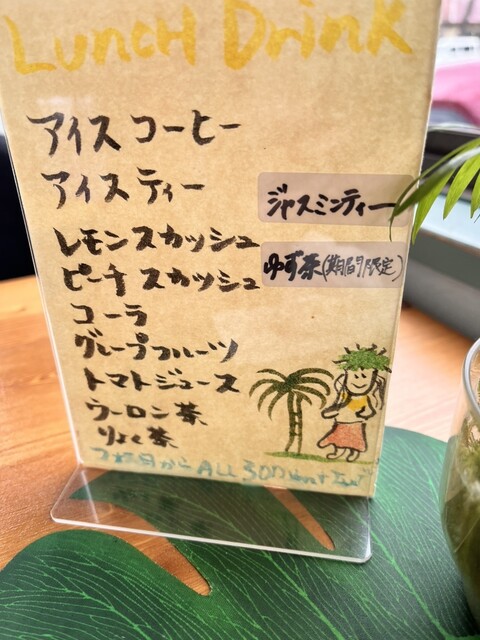 Lunch Drink
アイスコーヒー
アイスティー
ジャスミンティー
レモンスカッシュ
ピーチスカッシュ
ゆず茶(期間限定)
コーラ
グレープフルーツ
トマトジュース
ウーロン茶
りょく茶
2杯目からALL 300